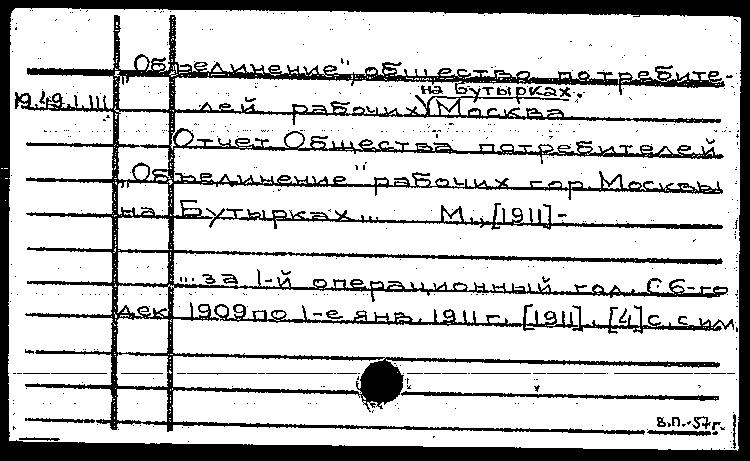 "Объединение", общество потребите-
на Бутырках.
19.49.I.III лей рабочих Москва
Отчет Общества потребителей
"Объединение" рабочих гор Москвы
на Бутырках... М., [1911]-
...за 1-й операционный год. С 6-го
дек 1909 по 1-е янв. 1911 г. [1911]. [4] с. с им.
В.П.-57г.